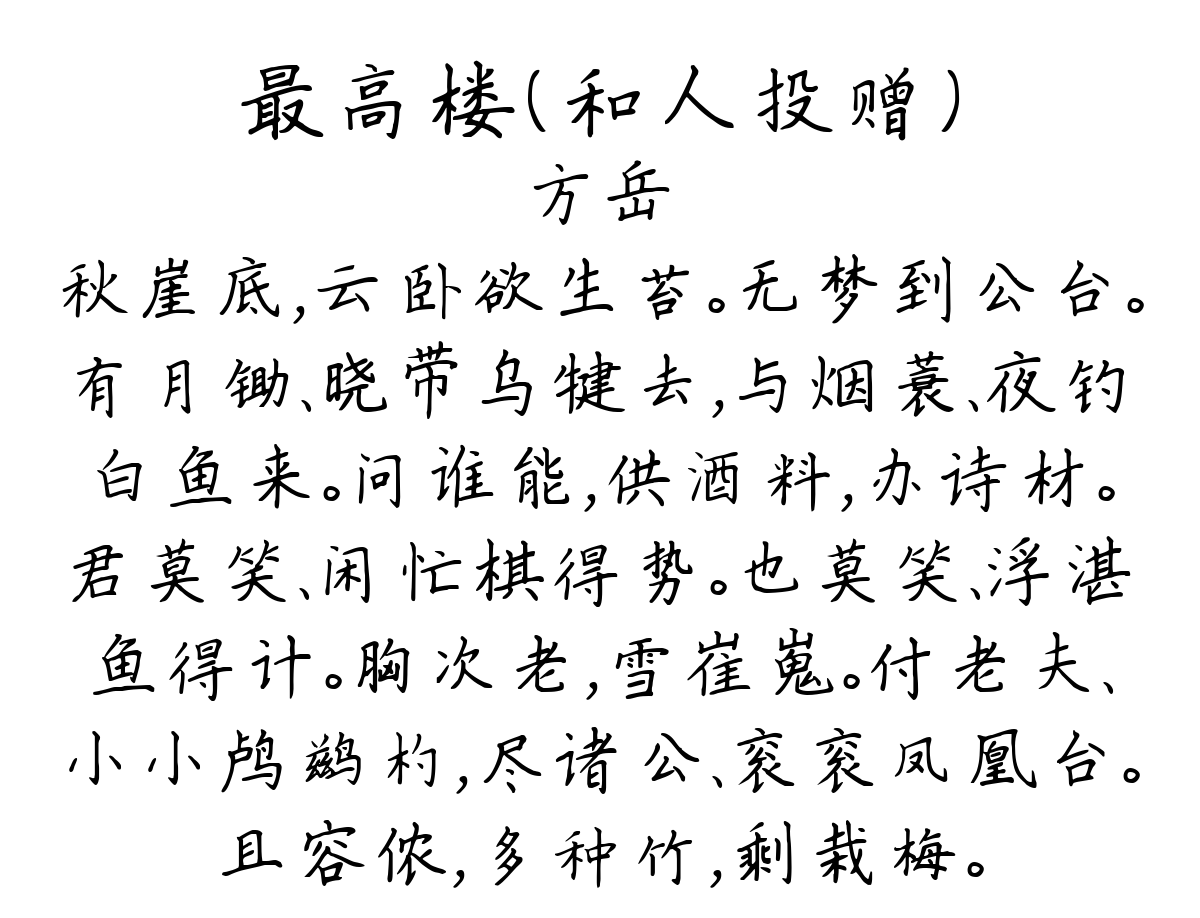 最高楼(和人投赠)
方岳
秋崖底,云卧欲生苔。无梦到公台。
有月锄、晓带乌犍去,与烟蓑、夜钓
白鱼来。问谁能,供酒料,办诗材。
君莫笑、闲忙棋得势。也莫笑、浮湛
鱼得计。胸次老,雪崔嵬。付老夫、
小小鸬鹚杓,尽诸公、衮衮凤凰台。
且容侬,多种竹,剩栽梅。